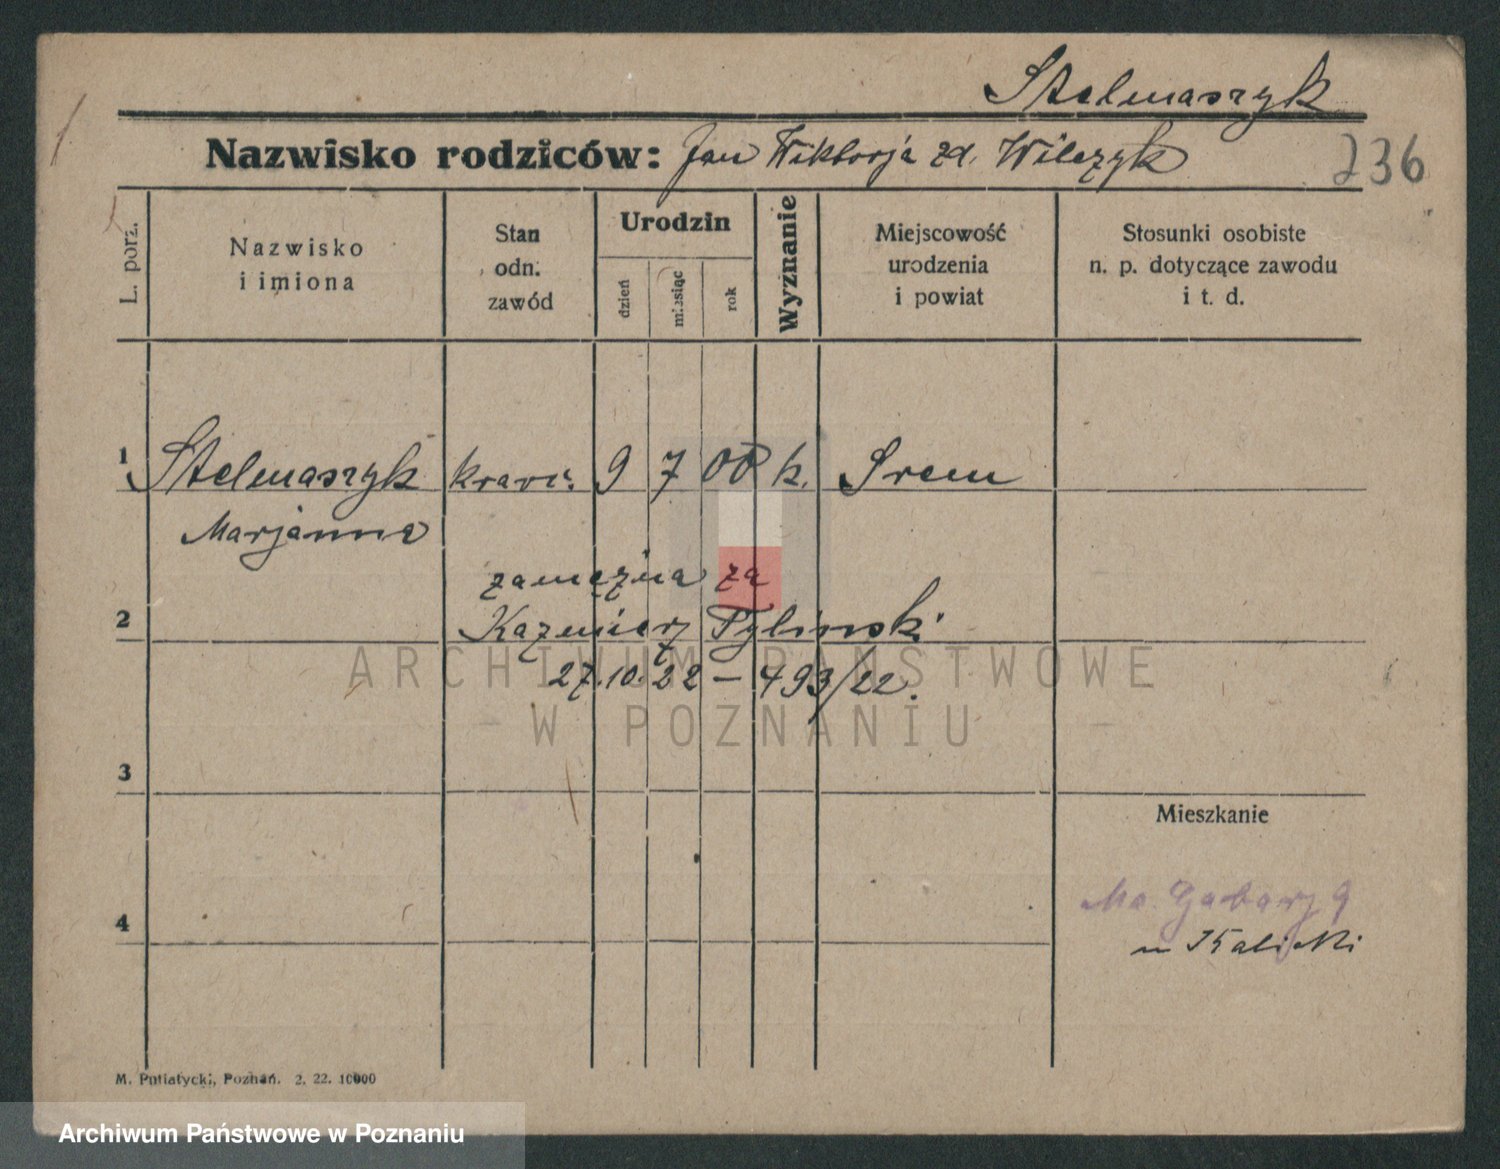 Stelmaszyk
Nazwisko rodziców: Jan Wiktorja zd. Wilczyk
236
L. porz.
Nazwisko
i imiona
Stan
odn.
zawód
Urodzin
dzień
miesiąc
rok
Wyznanie
Miejscowość
urodzenia
i powiat
Stosunki osobiste
n. p. dotyczące zawodu
i t. d.
1 Stelmaszyk krawc. 9 7 00 k. Srem
Marjanna
zamężna za
2 Kazmierz Tylinski
27.10.22 – 493/22.
ARCHIWUM PAŃSTWOWE
W POZNANIU
3
Mieszkanie
4
Ma. Gabarz 9
u Kalicki
M. Putiatycki, Poznań. 2. 22. 10000
Archiwum Państwowe w Poznaniu